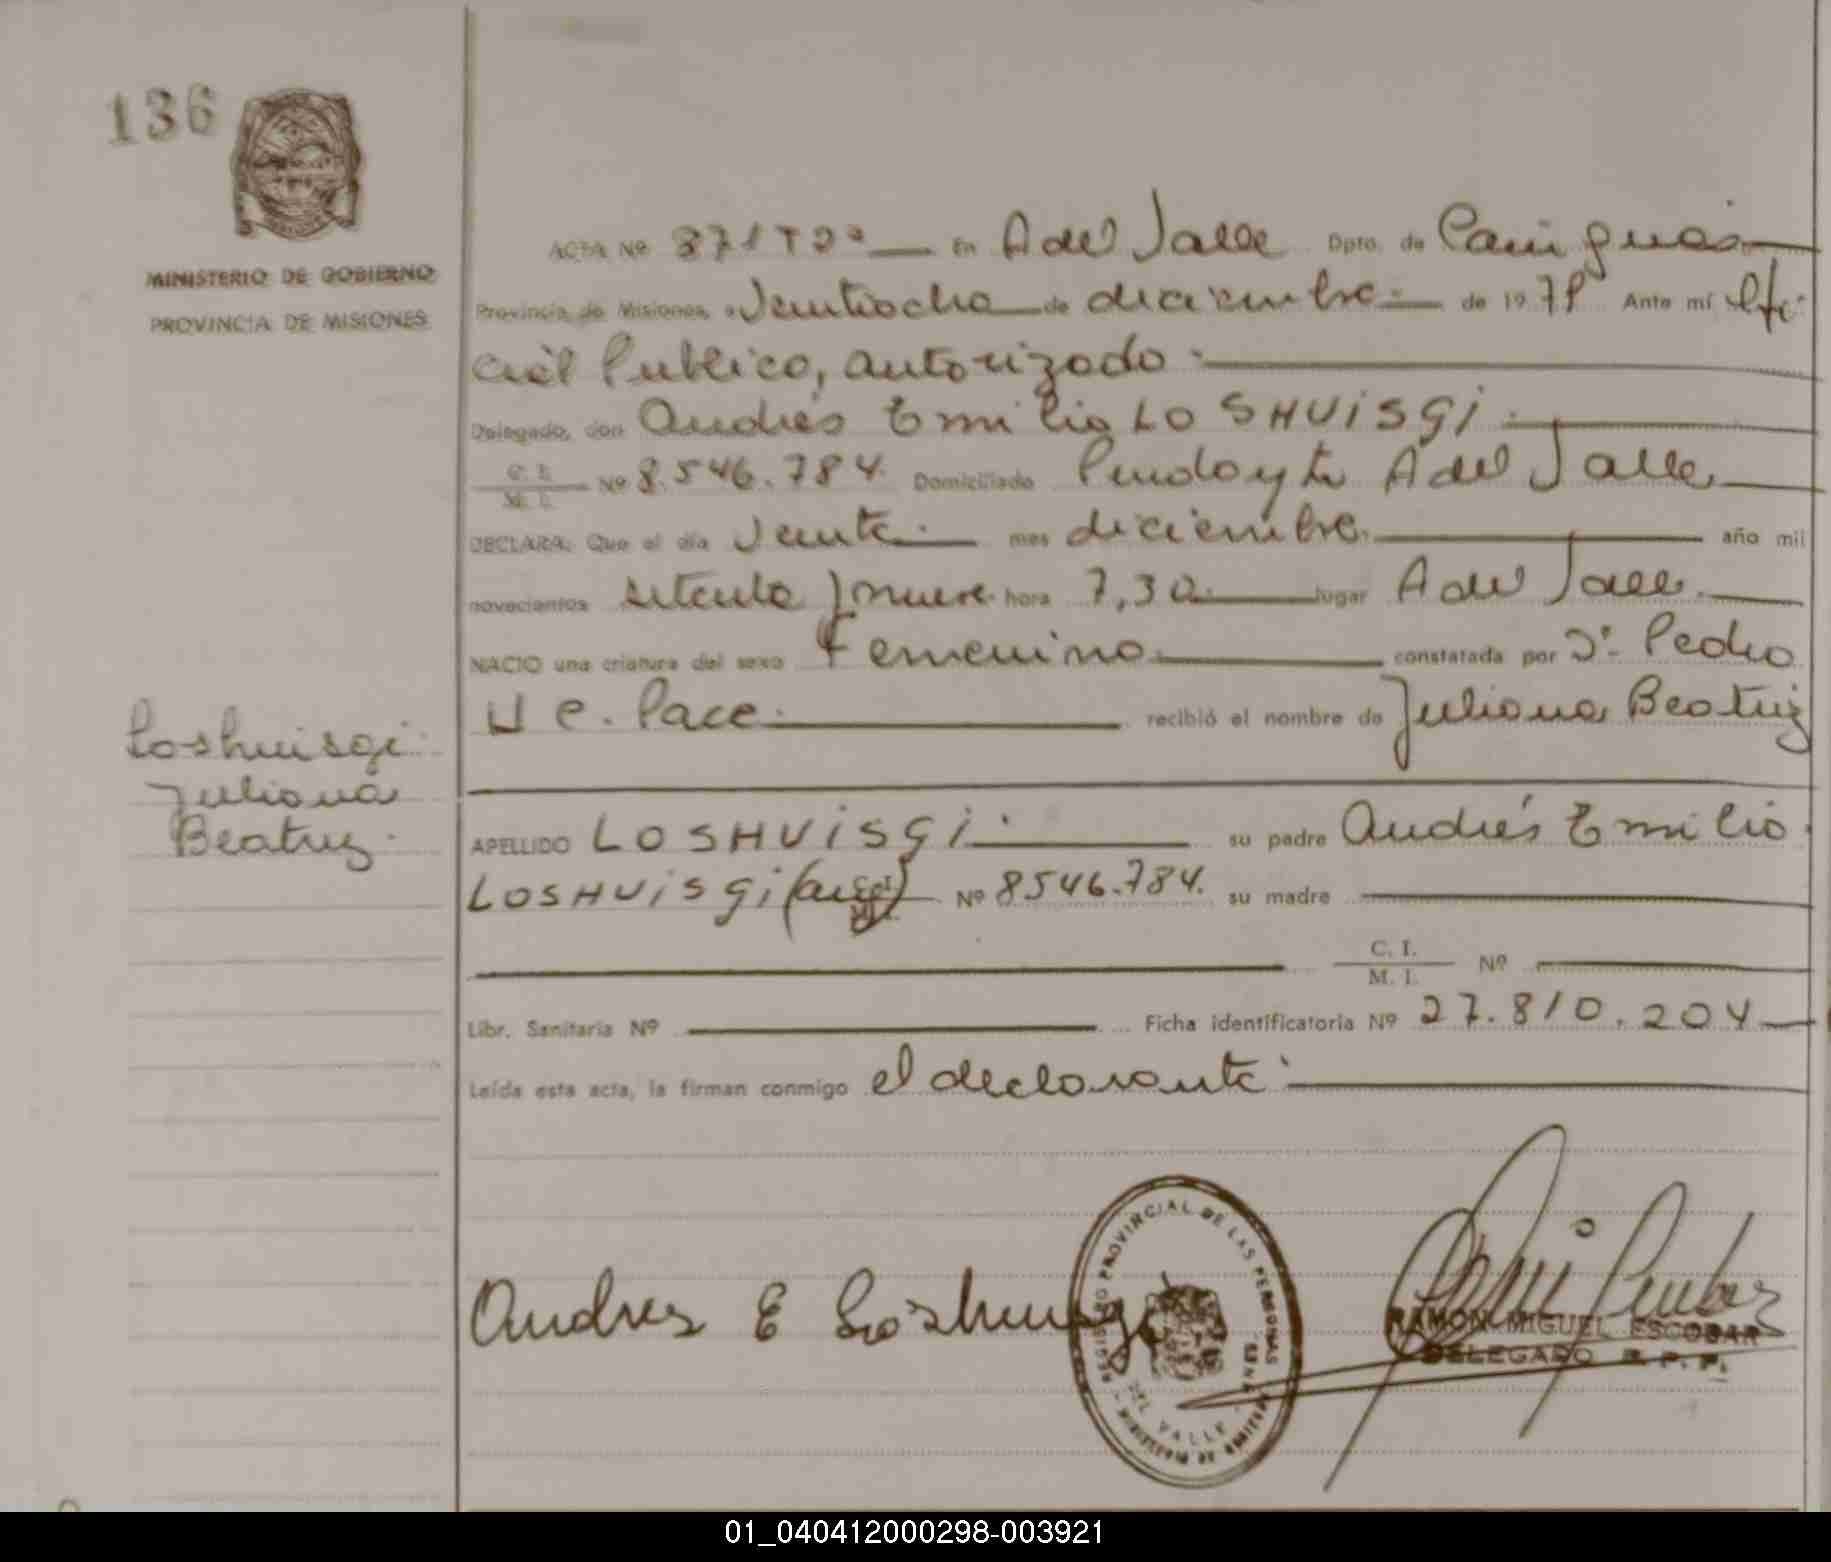 136
MINISTERIO DE GOBIERNO
PROVINCIA DE MISIONES
ACTA Nº 371 Tº 2º En A del Valle Dpto. de Cainguás
Provincia de Misiones, a Veintiocho de diciembre de 1979 Ante mí Ofi-
cial Publico, autorizado
Delegado, don Andrés Emilio LOSHUISGI
C. I. M. I. Nº 8.546.784 Domiciliado Pindoyti A del Valle
DECLARA: Que el día Veinte mes diciembre año mil
novecientos setenta y nueve hora 7,30 lugar A del Valle
NACIO una criatura del sexo Femenino constatada por Dr. Pedro
Pace recibió el nombre de Juliana Beatriz
Loshuisgi
Juliana
Beatriz
APELLIDO LOSHUISGI su padre Andrés Emilio
LOSHUISGI (arg) Nº 8546.784. su madre
C. I. M. I. Nº
Libr. Sanitaria Nº Ficha identificatoria Nº 27.810.204
Leída esta acta, la firman conmigo el declarante
Andres E Loshuisgi
REGISTRO PROVINCIAL DE LAS PERSONAS
DEL VALLE
RAMON MIGUEL ESCOBAR
DELEGADO R. P. P.
01_040412000298-003921